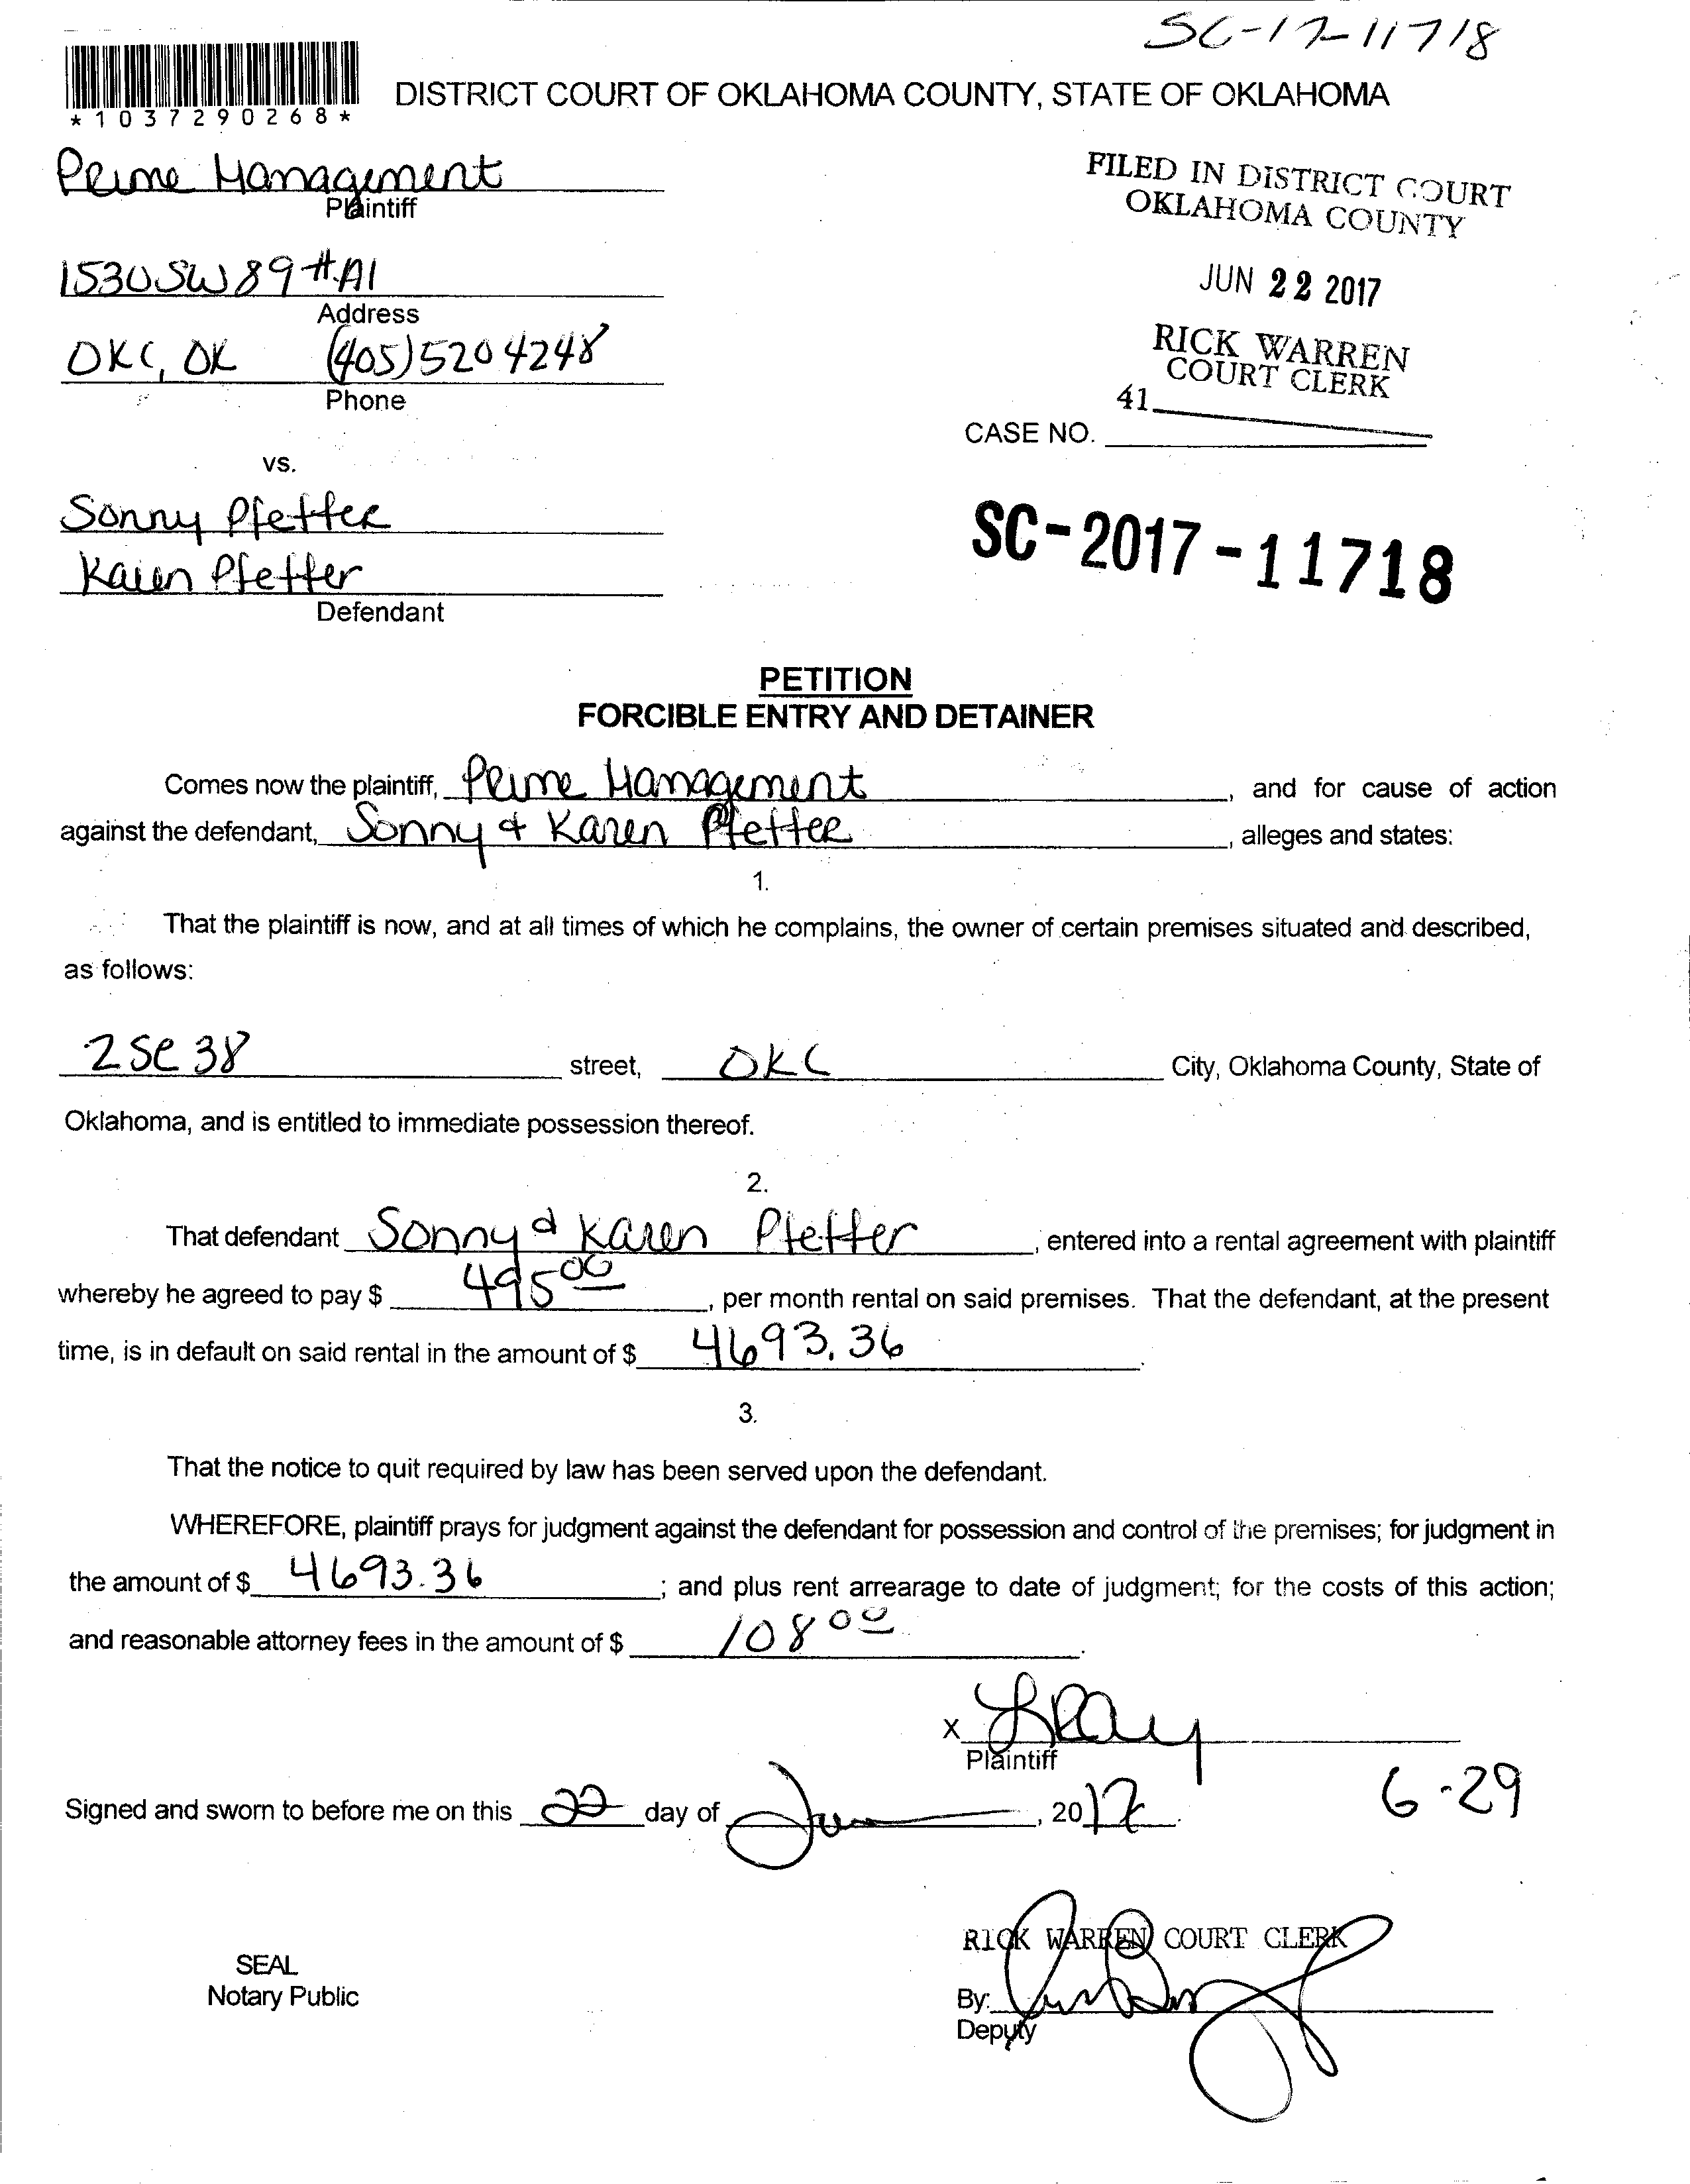 SC-17-11718
*1037290268*
DISTRICT COURT OF OKLAHOMA COUNTY, STATE OF OKLAHOMA
Prime Management
Plaintiff
FILED IN DISTRICT COURT
OKLAHOMA COUNTY
1530 SW 89 #A1
Address
JUN 22 2017
OKC, OK (405) 520 4248
Phone
RICK WARREN
COURT CLERK
41
CASE NO.
vs.
Sonny Pfeffer
Karen Pfeffer
Defendant
SC-2017-11718
PETITION
FORCIBLE ENTRY AND DETAINER
Comes now the plaintiff, Prime Management, and for cause of action
against the defendant, Sonny & Karen Pfeffer, alleges and states:
1.
That the plaintiff is now, and at all times of which he complains, the owner of certain premises situated and described,
as follows:
2 SE 38 street, OKC City, Oklahoma County, State of
Oklahoma, and is entitled to immediate possession thereof.
2.
That defendant Sonny & Karen Pfeffer, entered into a rental agreement with plaintiff
whereby he agreed to pay $ 495 00, per month rental on said premises. That the defendant, at the present
time, is in default on said rental in the amount of $ 4693.36.
3.
That the notice to quit required by law has been served upon the defendant.
WHEREFORE, plaintiff prays for judgment against the defendant for possession and control of the premises; for judgment in
the amount of $ 4693.36; and plus rent arrearage to date of judgment; for the costs of this action;
and reasonable attorney fees in the amount of $ 108 00.
X
Plaintiff
6-29
Signed and sworn to before me on this 22 day of June, 2017.
RICK WARREN COURT CLERK
SEAL
Notary Public
By:
Deputy